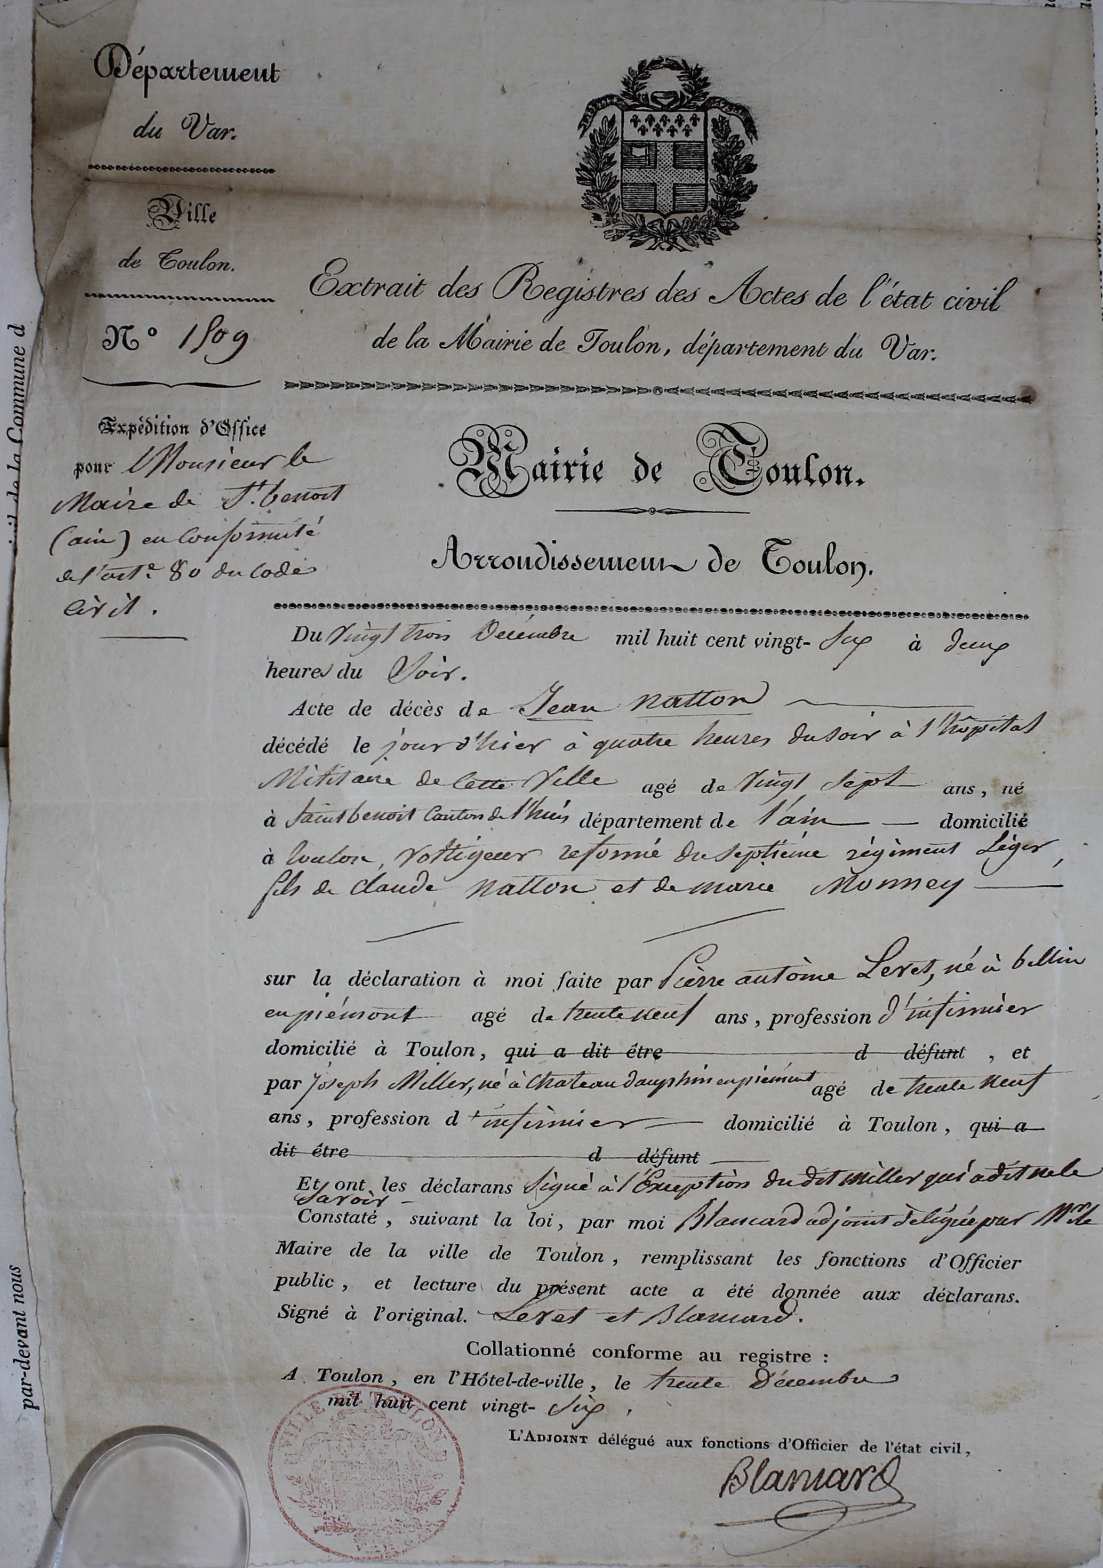 Département
du Var.
Ville
de Toulon.
N° 1509
Extrait des Registres des Actes de l'état civil
de la Mairie de Toulon, département du Var.
Expédition d'Office
pour Monsieur le
Maire de St. benoit
(ain) en Conformité
de l'art. 80 du Code
Civil.
Mairie de Toulon.
Arrondissement de Toulon.
Du Vingt trois Decembre mil huit cent vingt-Six à deux
heures du Soir.
Acte de décès de Jean Natton
décédé le jour d'hier à quatre heures du soir à l'hôpital
Militaire de Cette Ville agé de Vingt Sept ans, né
à Saint benoit Canton de l'huis département de l'ain domicilié
à toulon, Voltigeur réformé du Septième régiment Léger,
fils de Claude Natton et de marie Monney
sur la déclaration à moi faite par Pierre antoine Leret, né à bellin
en piémont agé de trente neuf ans, profession d'infirmier
domicilié à Toulon, qui a dit être d défunt, et
par Joseph Miller, né à Chateau dauphin en piémont agé de trente neuf
ans, profession d'infirmier domicilié à Toulon, qui a
dit être d défunt
Et ont les déclarans Signé à l'Exception du dit Miller qui a dit ne le
Savoir
Constaté, suivant la loi, par moi Blancard adjoint délégué par Mr le
Maire de la ville de Toulon, remplissant les fonctions d'Officier
public, et lecture du présent acte a été donnée aux déclarans.
Signé à l'original. Leret et Blancard.
Collationné conforme au registre :
A Toulon, en l'Hôtel-de-ville, le trente Décembre
mil huit cent vingt-Six.
L'Adjoint délégué aux fonctions d'Officier de l'état civil,
Blancard
VILLE DE TOULON
il de la Commune d
par-devant nous